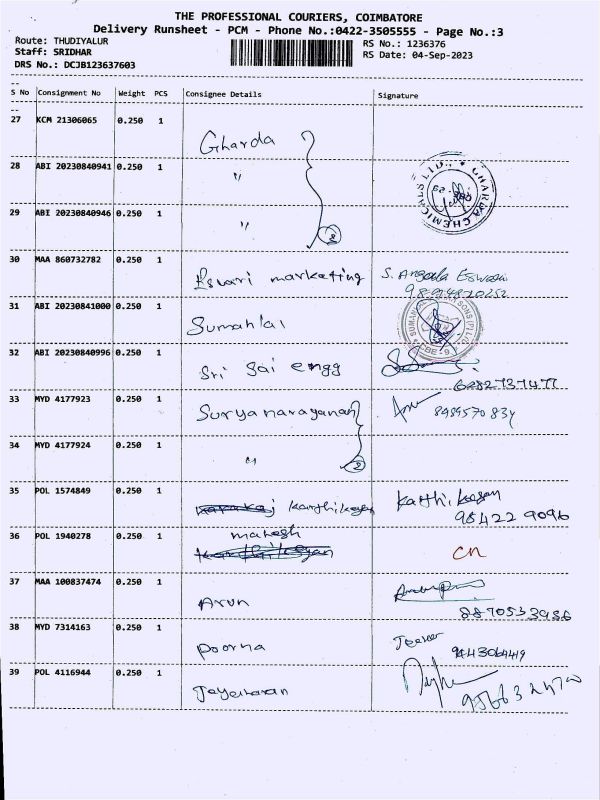 THE PROFESSIONAL COURIERS, COIMBATORE
Delivery Runsheet - PCM - Phone No.:0422-3505555 - Page No.:3
Route: THUDIYALUR
RS No.: 1236376
Staff: SRIDHAR
RS Date: 04-Sep-2023
DRS No.: DCJB123637603
S No Consignment No Weight PCS Consignee Details Signature
27 KCM 21306065 0.250 1 Gharda
28 ABI 20230840941 0.250 1 "
29 ABI 20230840946 0.250 1 " 3
GHARDA CHEMICALS LTD.,
30 MAA 860732782 0.250 1 Eswari marketing S. Angala Eswari
31 ABI 20230841000 0.250 1 Sumanlal
32 ABI 20230840996 0.250 1 Sri Sai engg
6282737477
33 MYD 4177923 0.250 1 Suryanarayanan 8989570834
34 MYD 4177924 0.250 1 " 2
35 POL 1574849 0.250 1 Karthikeyan Karthikeyan
984229 9096
36 POL 1940278 0.250 1 mahesh cn
37 MAA 100837474 0.250 1 Arun
8870533986
38 MYD 7314163 0.250 1 Poorna
9443064419
39 POL 4116944 0.250 1 Jayeharan